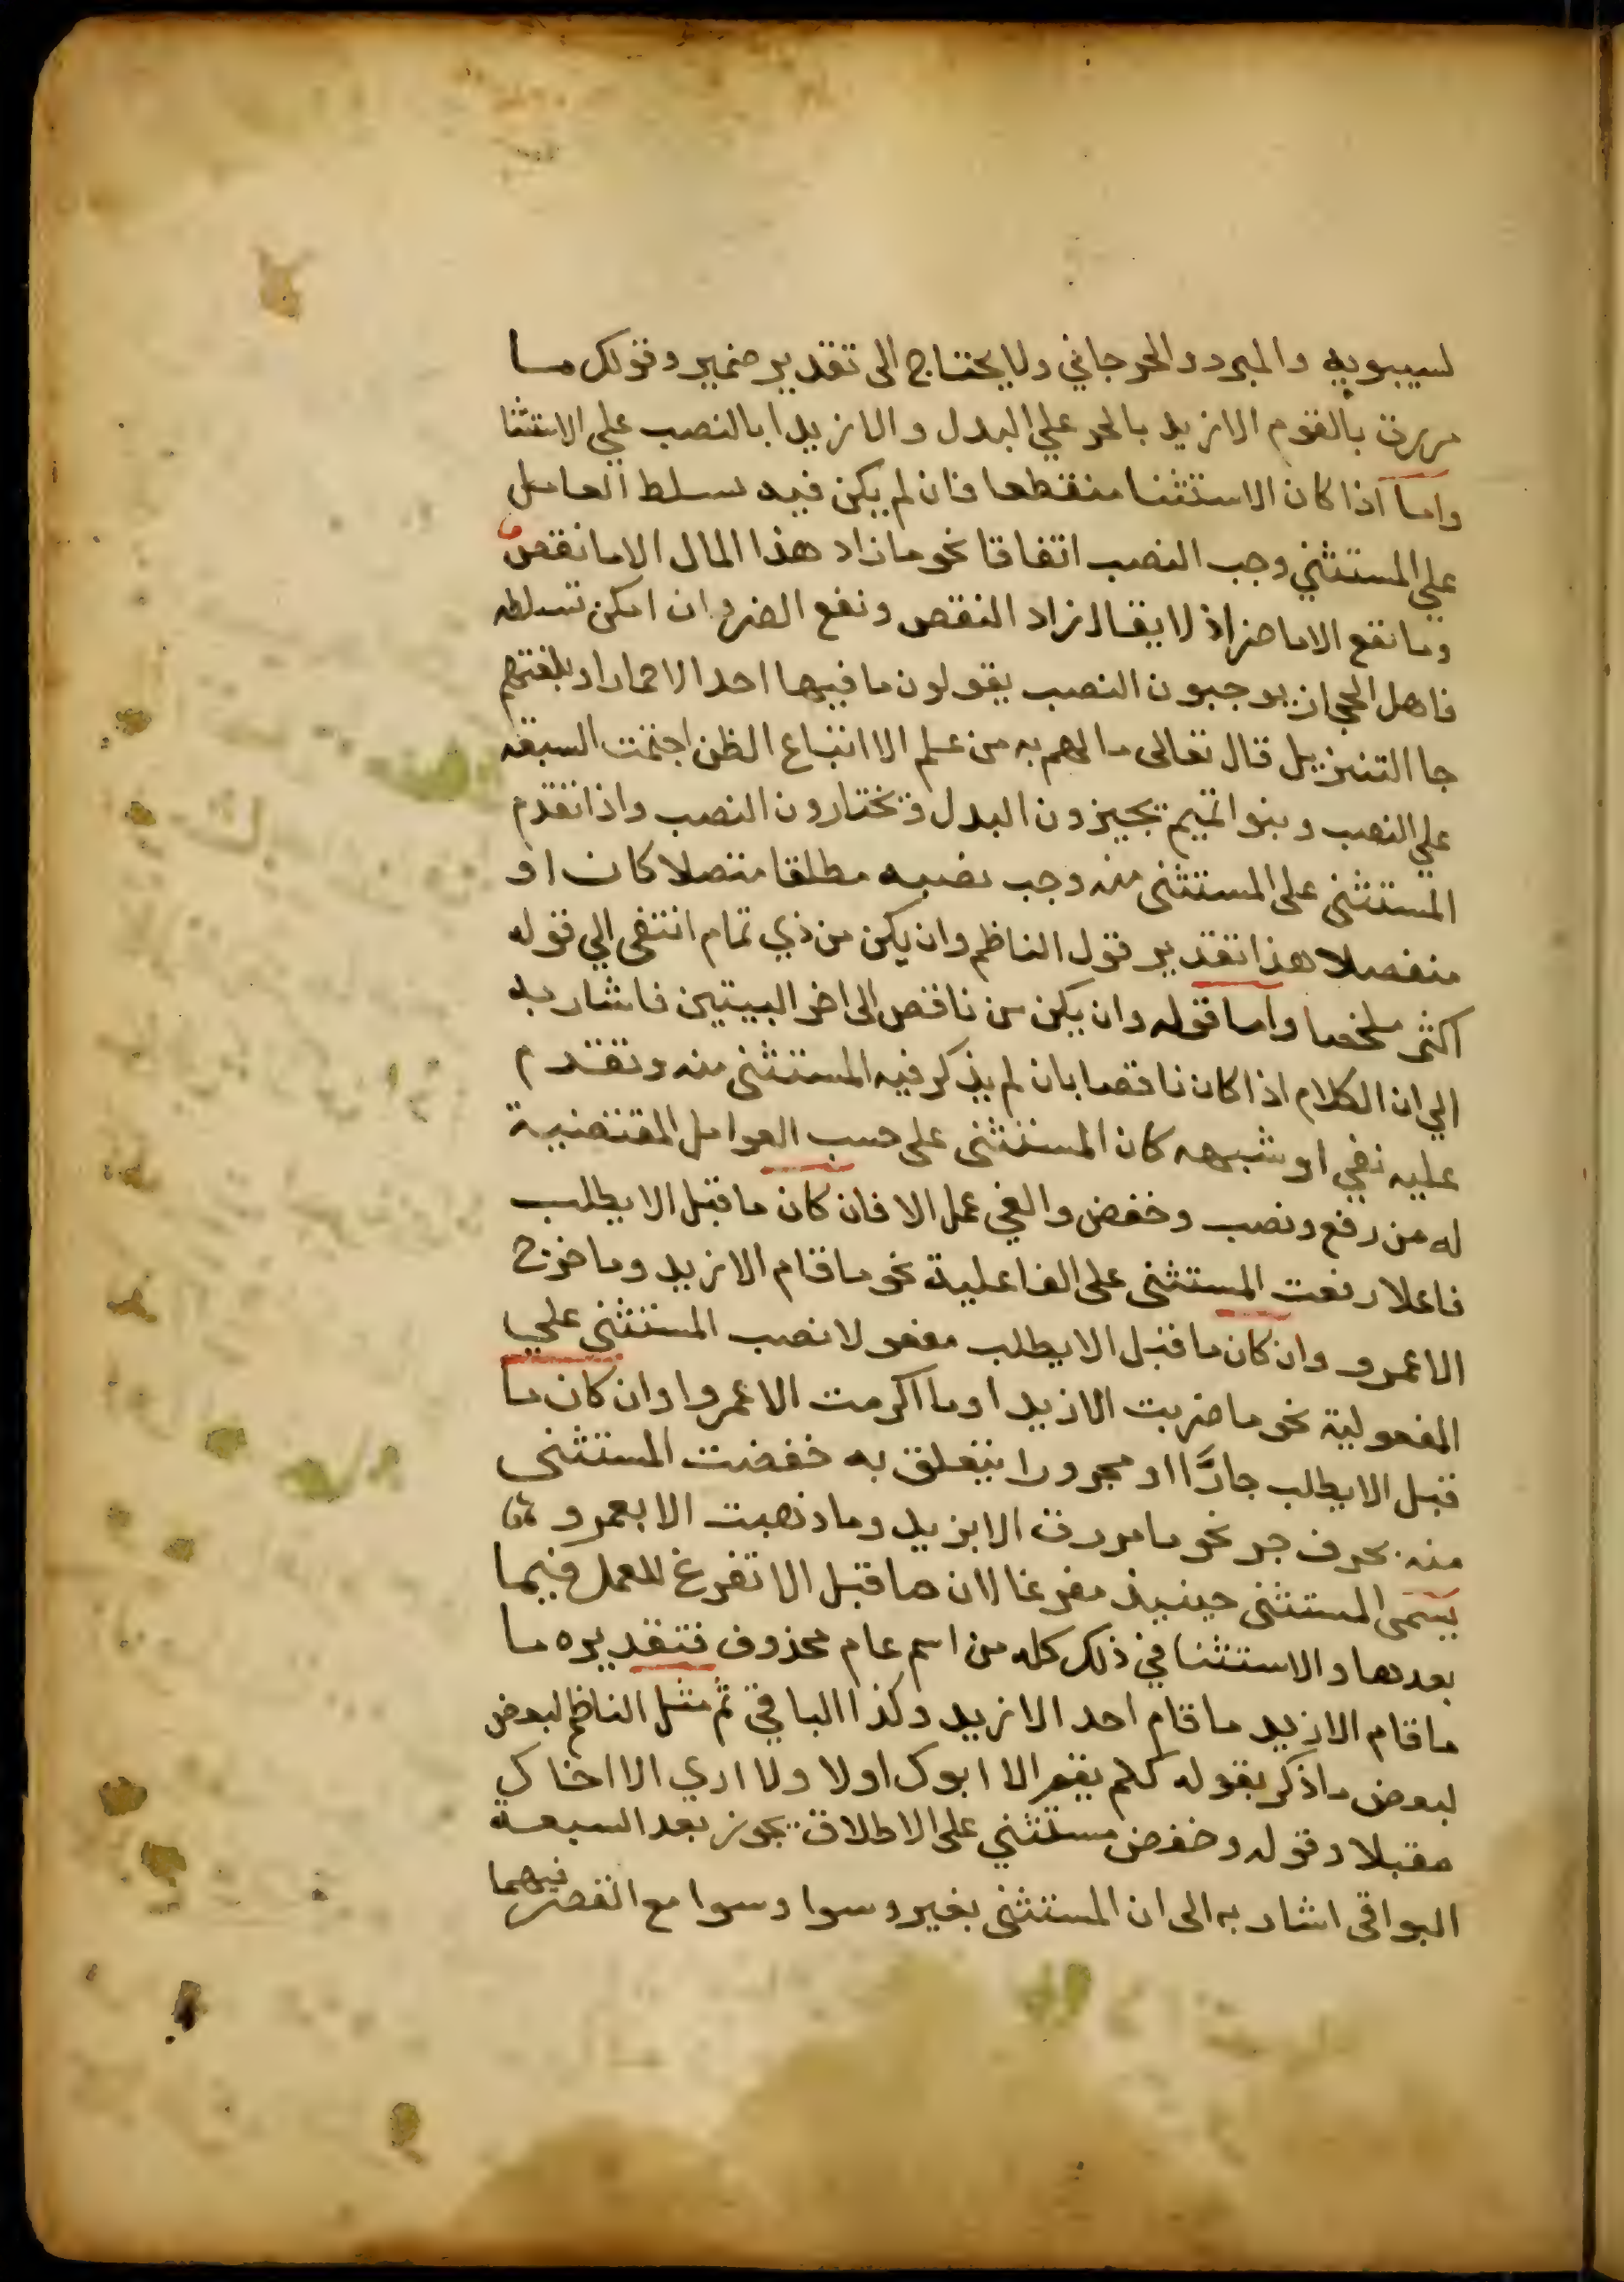 لسيبويه والمبرد والجرجاني ولا يحتاج الى تقدير ضمير وقولك ما
مررت بالقوم الا زيد بالجر علي البدل والا زيدا بالنصب علي الاستثنا
واما اذا كان الاستثنا منقطعا فان لم يكن فيه تسلط العامل
علي المستثني وجب النصب اتفاقا نحو ما زاد هذا المال الا ما نقص
وما نفع الا ما ضر اذ لا يقال زاد النقص ونفع الضر وان امكن تسلطه
فاهل الحجاز يوجبون النصب يقولون ما فيها احد الا حمارا وبلغتهم
جا التنزيل قال تعالى ما لهم به من علم الا اتباع الظن اجتمت السبعة
علي النصب وبنو اتميم يجيزون البدل ويختارون النصب واذا تقدم
المستثنى على المستثنى منه وجب نصبه مطلقا متصلا كان او
منفصلا هذا تقدير قول الناظم وان يكن من ذي تمام انتفى الي قوله
اكثر ملخصا واما قوله وان يكن من ناقص الى اخر البيتين فاشار به
الي ان الكلام اذا كان ناقصا بان لم يذكر فيه المستثنى منه وتقدم
عليه نفي او شبهه كان المستثنى على حسب العوامل المقتضية
له من رفع ونصب وخفض والغي عمل الا فان كان ما قبل الا يطلب
فاعلا رفعت المستثنى على الفاعلية نحو ما قام الا زيد وما خرج
الا عمرو وان كان ما قبل الا يطلب مفعولا نصب المستثنى علي
المفعولية نحو ما ضربت الا زيدا وما اكرمت الا عمروا وان كان ما
قبل الا يطلب جارًّا او مجرورا يتعلق به خفضت المستثنى
منه بحرف جر نحو ما مررت الا بزيد وما ذهبت الا بعمرو
يسمى المستثنى حينيذ مفرغا لان ما قبل الا تفرغ للعمل فيما
بعدها والاستثنا في ذلك كله من اسم عام محذوف فتقديره ما
ما قام الا زيد ما قام احد الا زيد وكذا الباقي ثم مثل الناظم لبعض
لبعض ما ذكر بقوله كلم يقم الا ابوك اولا ولا اري الا اخاك
مقبلا وقوله وخفض مستثني على الاطلاق يجوز بعد السبعة
البواقى اشار به الى ان المستثنى بغير وسوا وسوا مع القصر فيهما